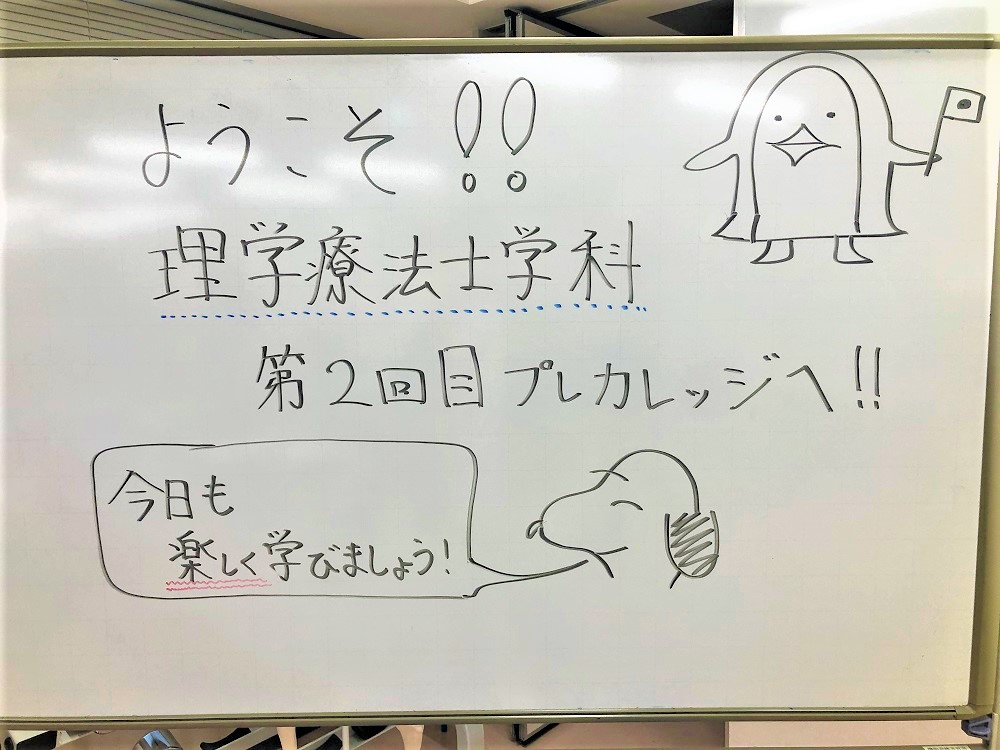 ようこそ!!
理学療法士学科
第2回目プレカレッジへ!!
今日も
楽しく学びましょう!